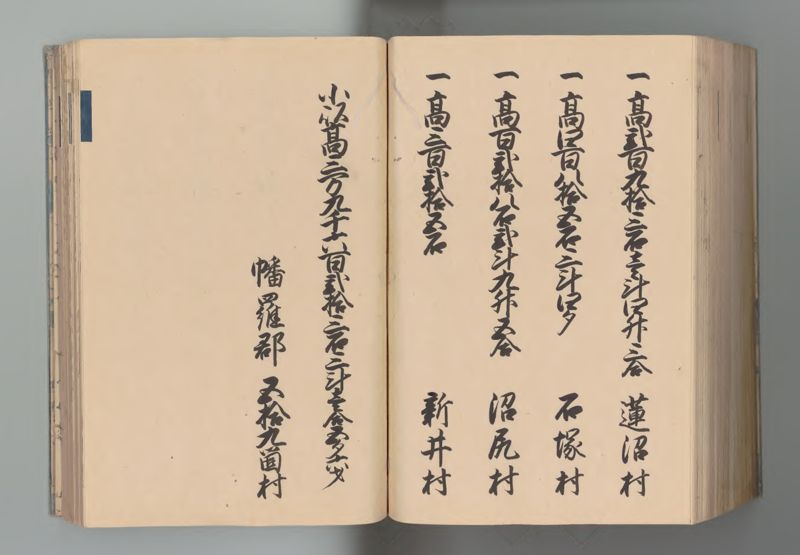 一高弐百九拾三石壱斗四升三合 蓮沼村
一高四百八拾五石三斗四夕 石塚村
一高百弐拾八石弐斗九升五合 沼尻村
一高三百弐拾五石 新井村
小以高三万九千六百弐拾三石三斗壱合
幡羅郡 五拾九箇村